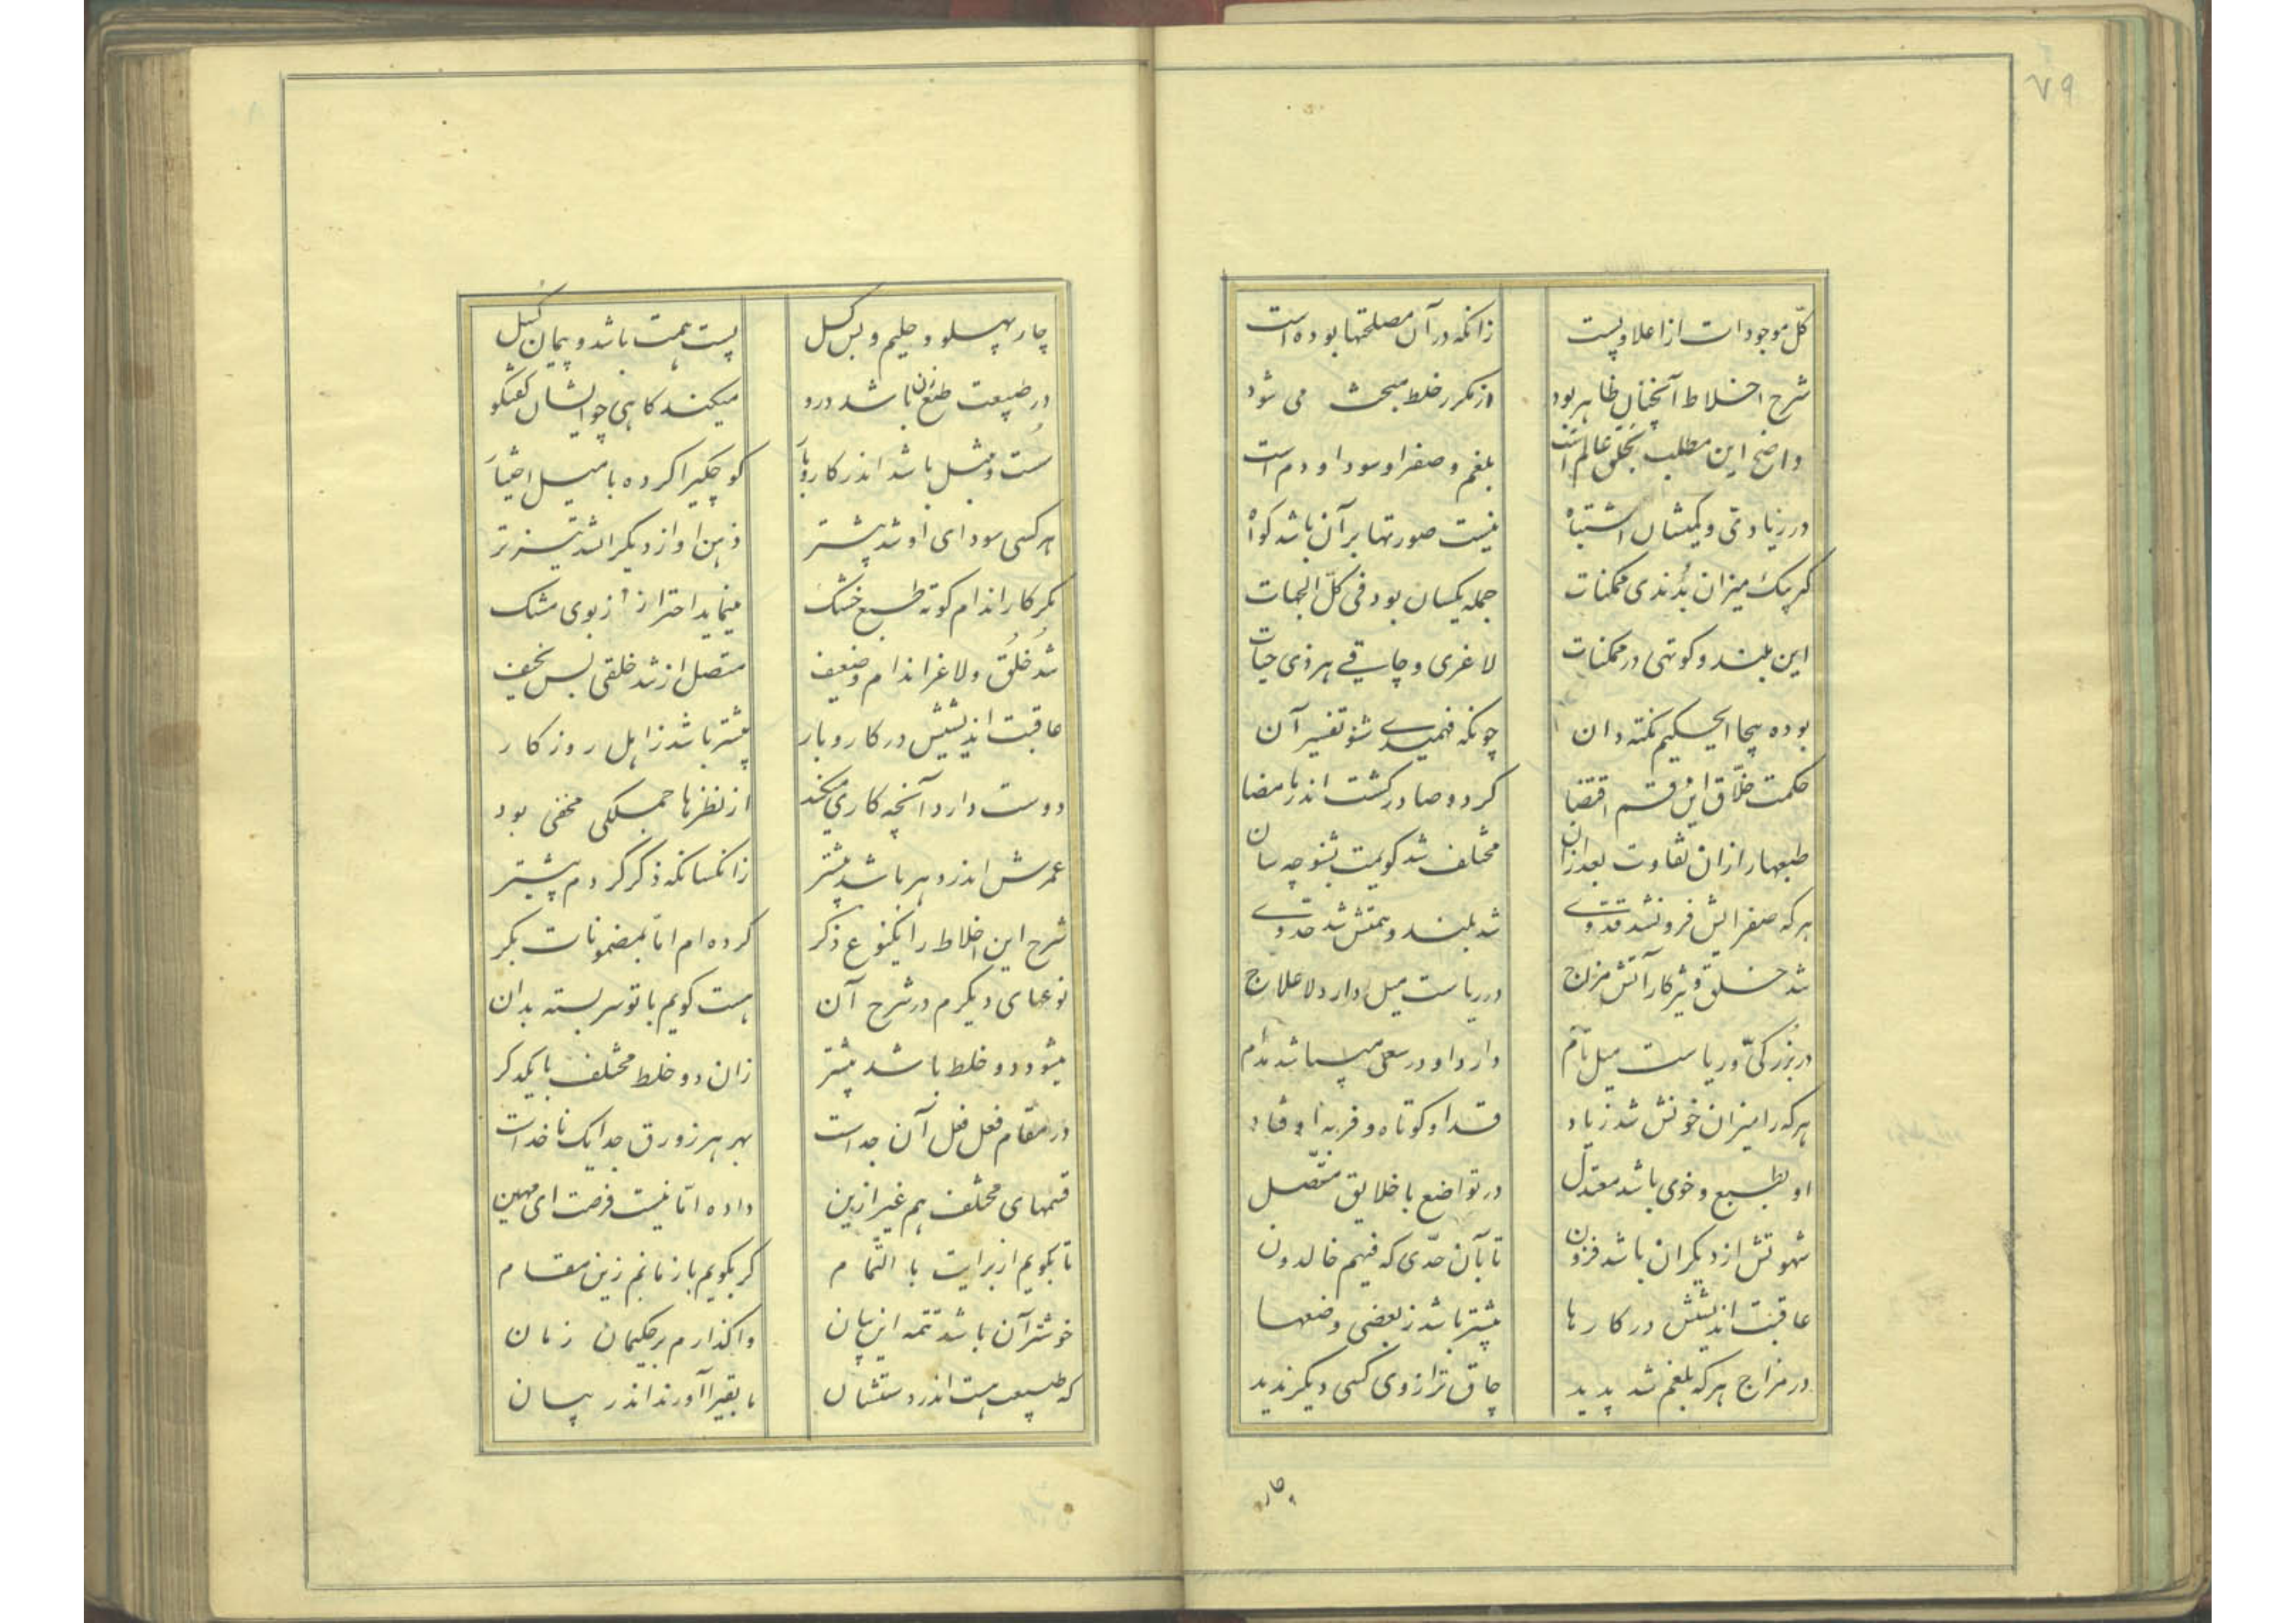 ۷۹
کلّ موجودات از اعلا و پست زانکه در آن مصلحتها بوده است
شرح اخلاط آنچنان ظاهر بود از مکرر خلط مبحث می شود
واضح این مطلب بخلق عالم است بلغم و صفرا و سودا و دم است
در زیادتی و کمیشان اشتباه نیست صورتها بر آن باشد کواه
کر بیک میزان بُدندی ممکنات جمله یکسان بود فی کلّ الجهات
این بلند و کوتهی در ممکنات لاغری و چاقی هر ذی حیات
بوده بیجا ایحکیم نکته دان چونکه فهمیدی شنو تفسیر آن
حکمت خلّاق این قسم اقتضا کرد و صادر کشت اندر با مضا
طبعها را زان تفاوت بعد ازان مختلف شد کویمت بشنو چه سان
هرکه صفرایش فزون شد قد وی شد بلند و همتش شد حد وی
شد خلیق و پرکار آتش مزاج در ریاست میل دارد لاعلاج
در بزرکیّ و ریاست میل تام دارد او در سعی میباشد مدام
هرکه را میزان خونش شد زیاد قد او کوتاه و فربه اوفتاد
او بطبع و خوی باشد معتدل در تواضع با خلایق متّصل
شهوتش از دیکران باشد فزون تا بآن حدّی که فیهم خالدون
عاقبت اندیشیش در کارها بیشتر باشد ز بعضی وضعها
در مزاج هرکه بلغم شد پدید چاق تر از وی کسی دیکر ندید
چار
چار پهلو و حلیم و بس کسل پست همت باشد و پیمان کسل
در طبیعت طبع زن باشد درو میکند کاهی چو ایشان کفتکو
سُست و تنبل باشد اندر کار و بار کوچکیرا کرده با میل اختیار
هر کسی سودای او شد بیشتر ذهن او از دیکران شد تیزتر
بُرکار اندام کوته طبع خشک مینماید احتراز از بوی مشک
شد خُلُق و لاغر اندام و ضعیف متصل از شد خلقی بس نحیف
عاقبت اندیشیش در کار و بار بیشتر باشد ز اهل روزکار
دوست دارد آنچه کاری میکند از نظرها جملکی مخفی بود
عمرش اندر دهر باشد بیشتر زانکسانکه ذکر کردم پیشتر
شرح این اخلاط را یکنوع ذکر کرده ام امّا بمضمونات بکر
نوعهای دیکرم در شرح آن هست کویم با تو سربسته بدان
میشود دو خلط باشد بیشتر زان دو خلط مختلف با یکدکر
در مقام فعل فعل آن جداست بهر هر زورق جدا یک ناخداست
قسمهای مختلف هم غیر ازین داده امّا نیست فرصت ای مهین
تا بکویم از برایت با التّمام کر بکویم باز مانم زین مقام
خوشتر آن باشد تتمه این بیان واکذارم بر حکیمان زمان
که طبیعت هست اندر دستشان تا بقیرا آورند اندر بیان